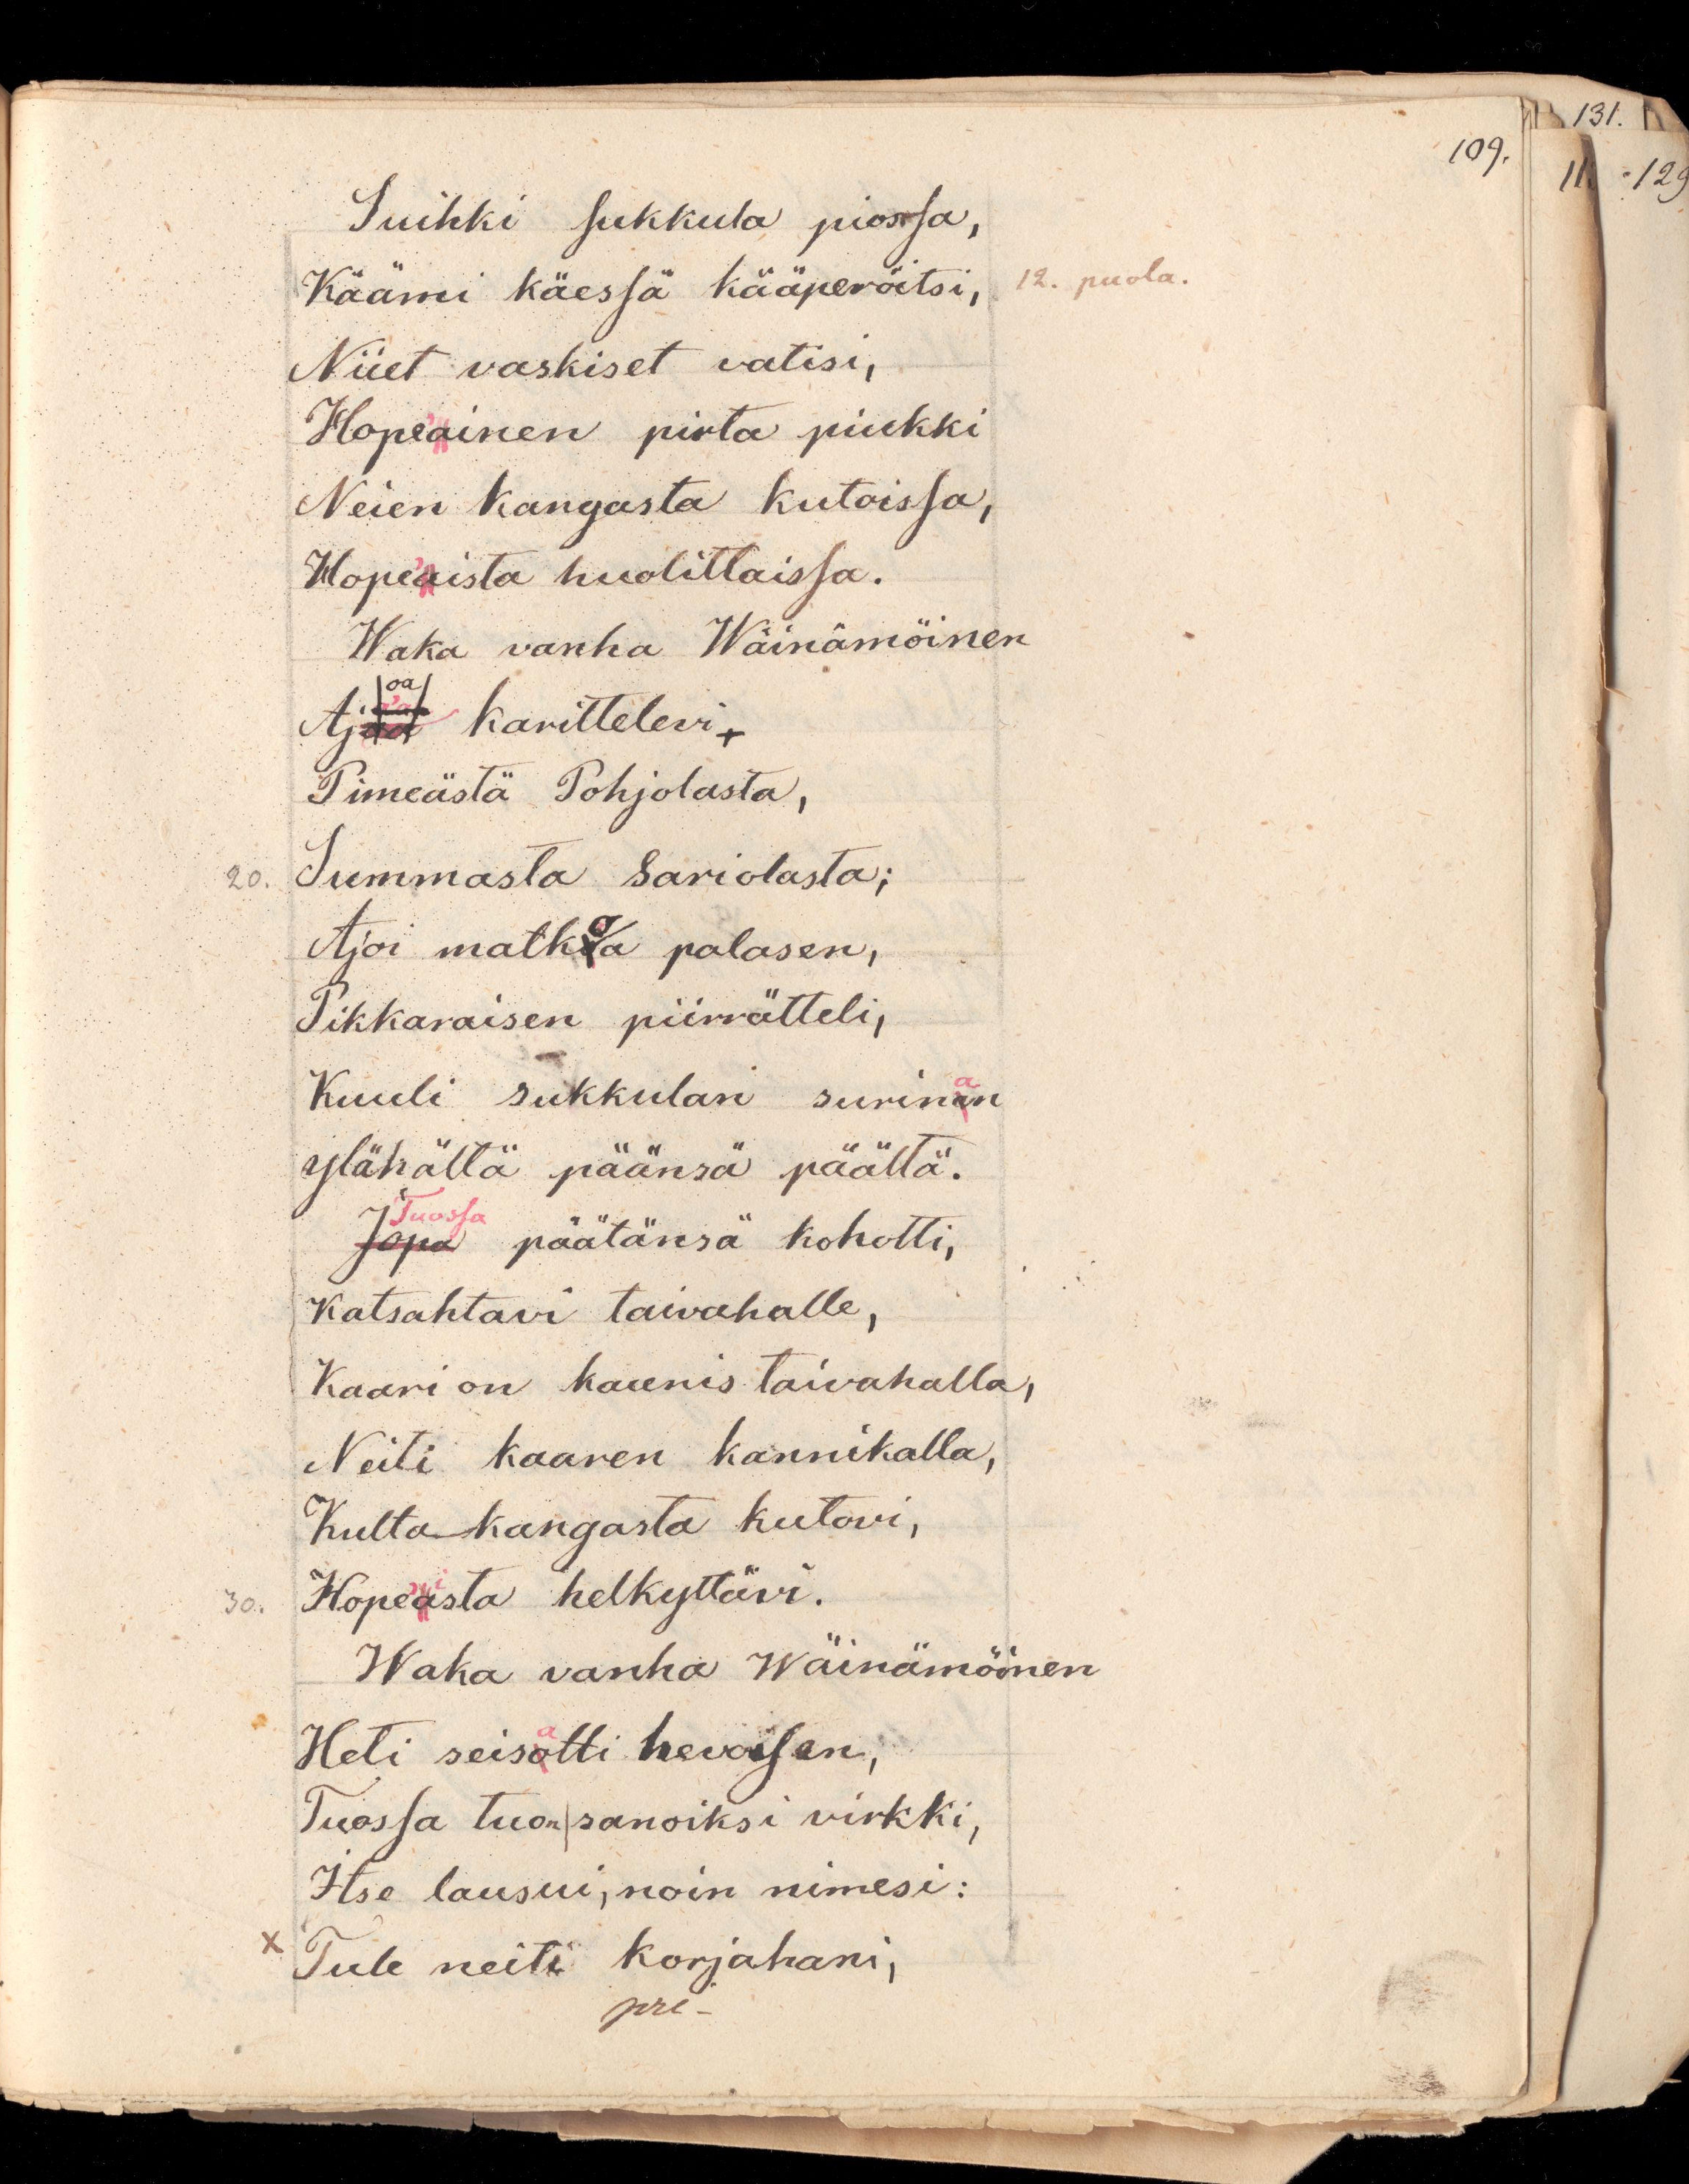 131.
109.
11. 129
Suihki sukkula piossa,
Käämi käessä kääperöitsi, 12. puola.
Niiet vaskiset vatisi,
Hope'ainen pirta piukki
Neien kangasta kutoissa,
Hope'aista huolittaissa.
Waka vanha Wäinämöinen
oa
Ajaa karittelevi
Pimeästä Pohjolasta,
20. Summasta Sariolasta;
Ajoi matkoa palasen,
Pikkaraisen piirrätteli,
a
Kuuli sukkulan surinan
ylähältä päänsä päältä.
Tuossa
Jopa päätänsä kohotti,
Katsahtavi taivahalle,
Kaari on kaunis taivahalla,
Neiti kaaren kannikalla,
Kulta-kangasta kutovi,
30. Hope'aista helkyttävi.
Waka vanha Wäinämöinen
a
Heti seisotti hevoisen,
Tuossa tuon sanoiksi virkki,
Itse lausui, noin nimesi:
x Tule neiti korjahani,
pre-